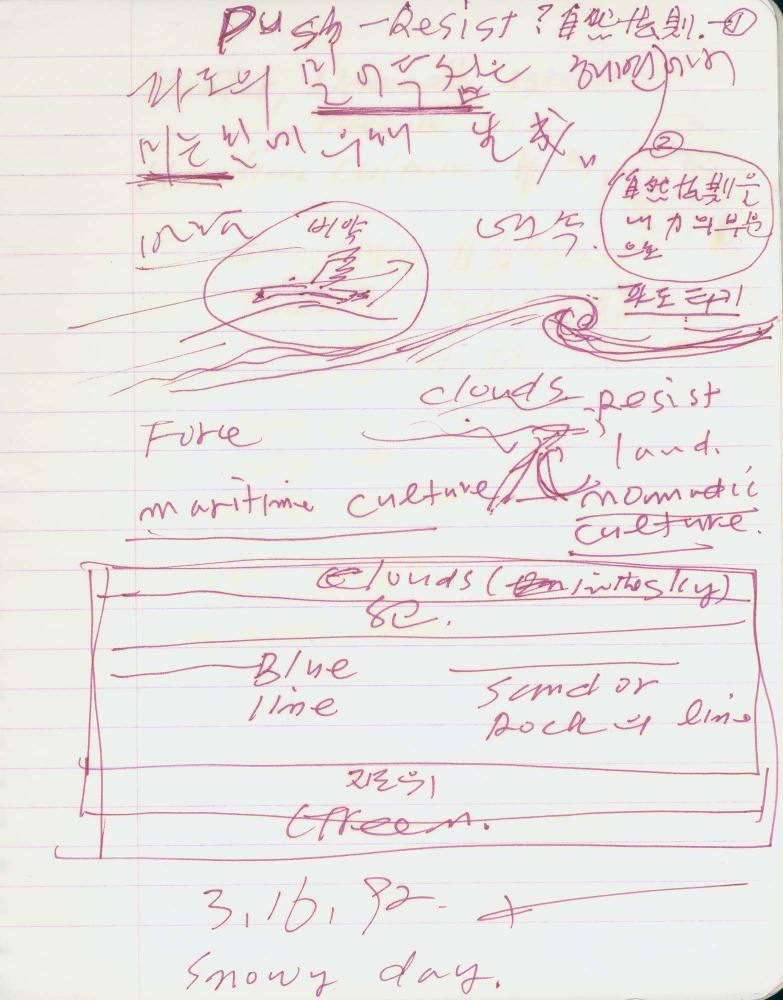 Push-Resist? 自然法則.-①
파도의 밀어부침은 해변에서
미는힘에 의해 生成.
②
自然法則을
내 力의 부분
으로
파도타기
Force
clouds
Resist
land.
maritime culture
nomadic
culture.
Clouds (in the sky)
Blue
line
Sand or
Rock의 line
지도위
Green.
3,16,92.
Snowy day.